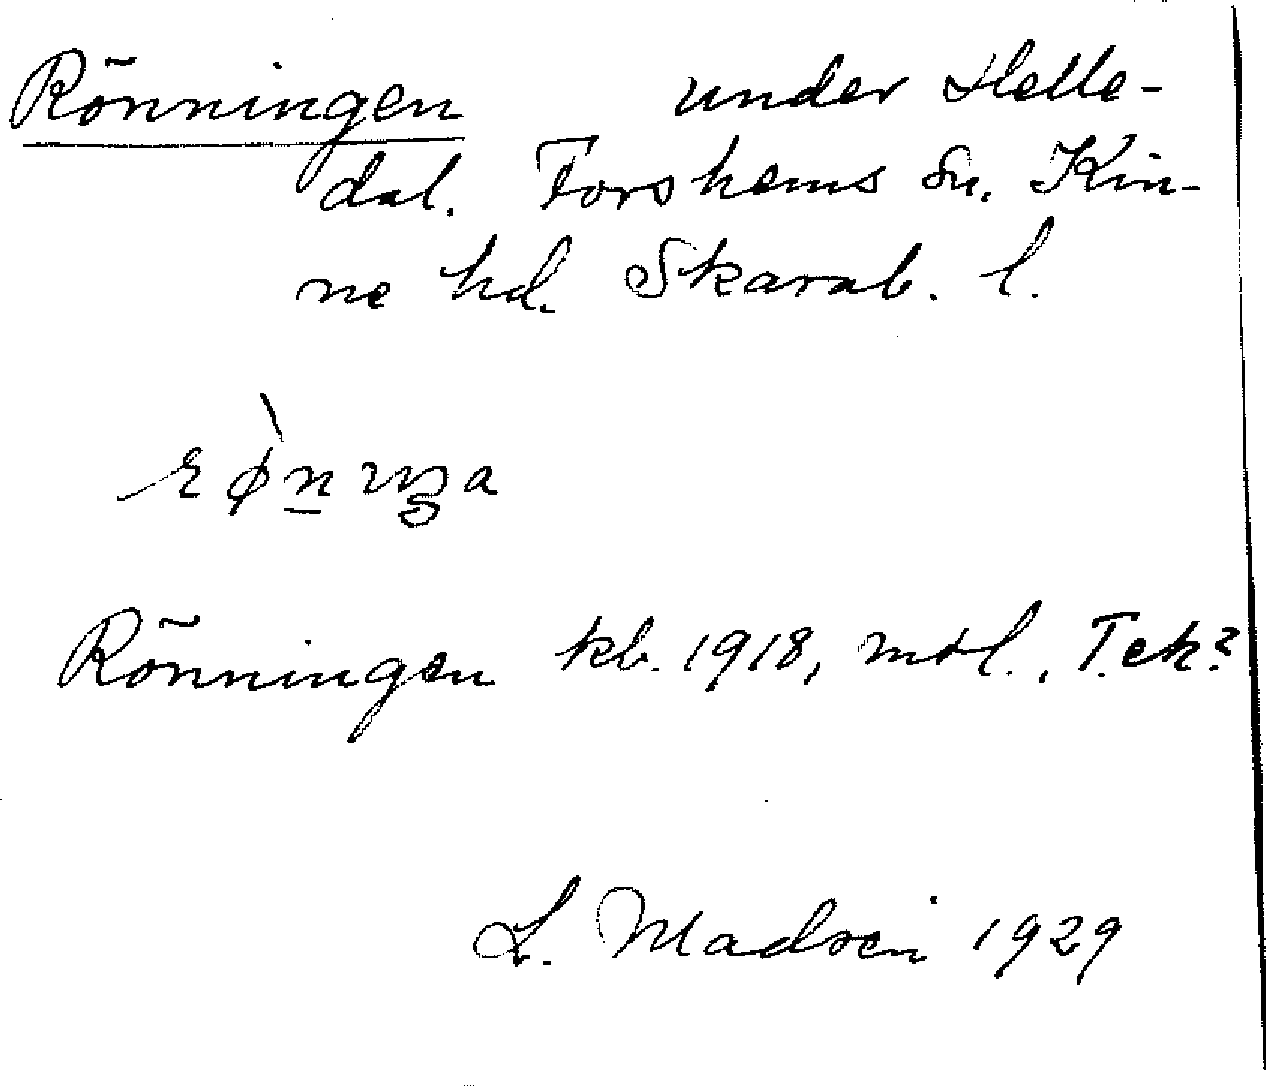 Rönningen under Helle-
dal. Forshems sn. Kin-
ne hd. Skarab. l.
Rönningen kb. 1918, mtl., T.ek?
L. Madsen 1929